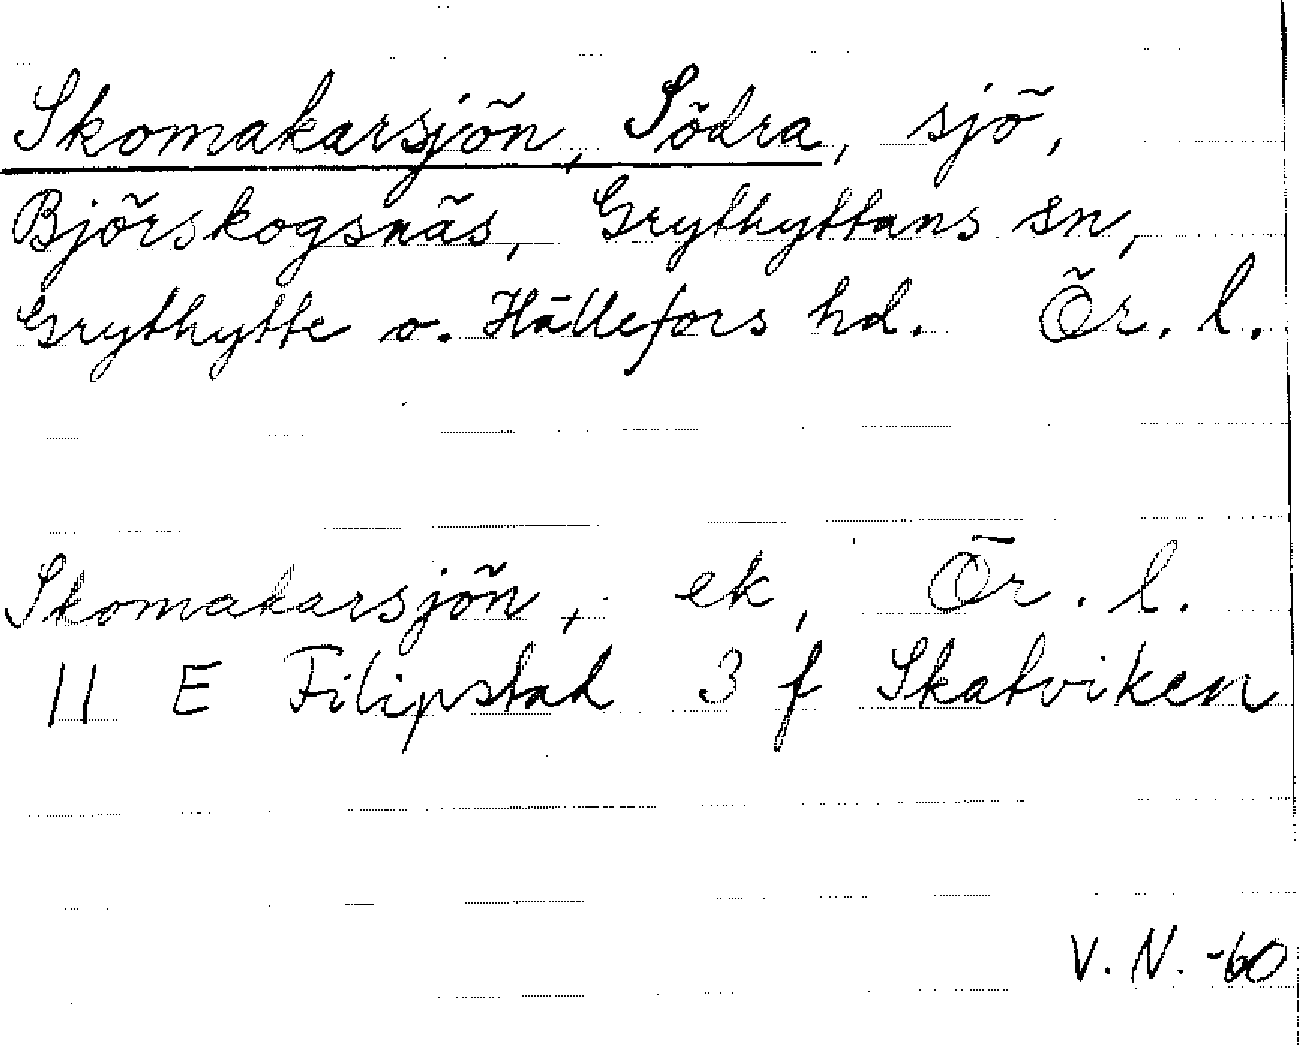 Skomakarsjön, Södra, sjö,
Björskogsnäs, Grythyttans sn,
Grythytte o. Hällefors hd. Ör. l.
Skomakarsjön, ek, Ör. l.
11 E Filipstad 3 f Skatviken
V. N. -60